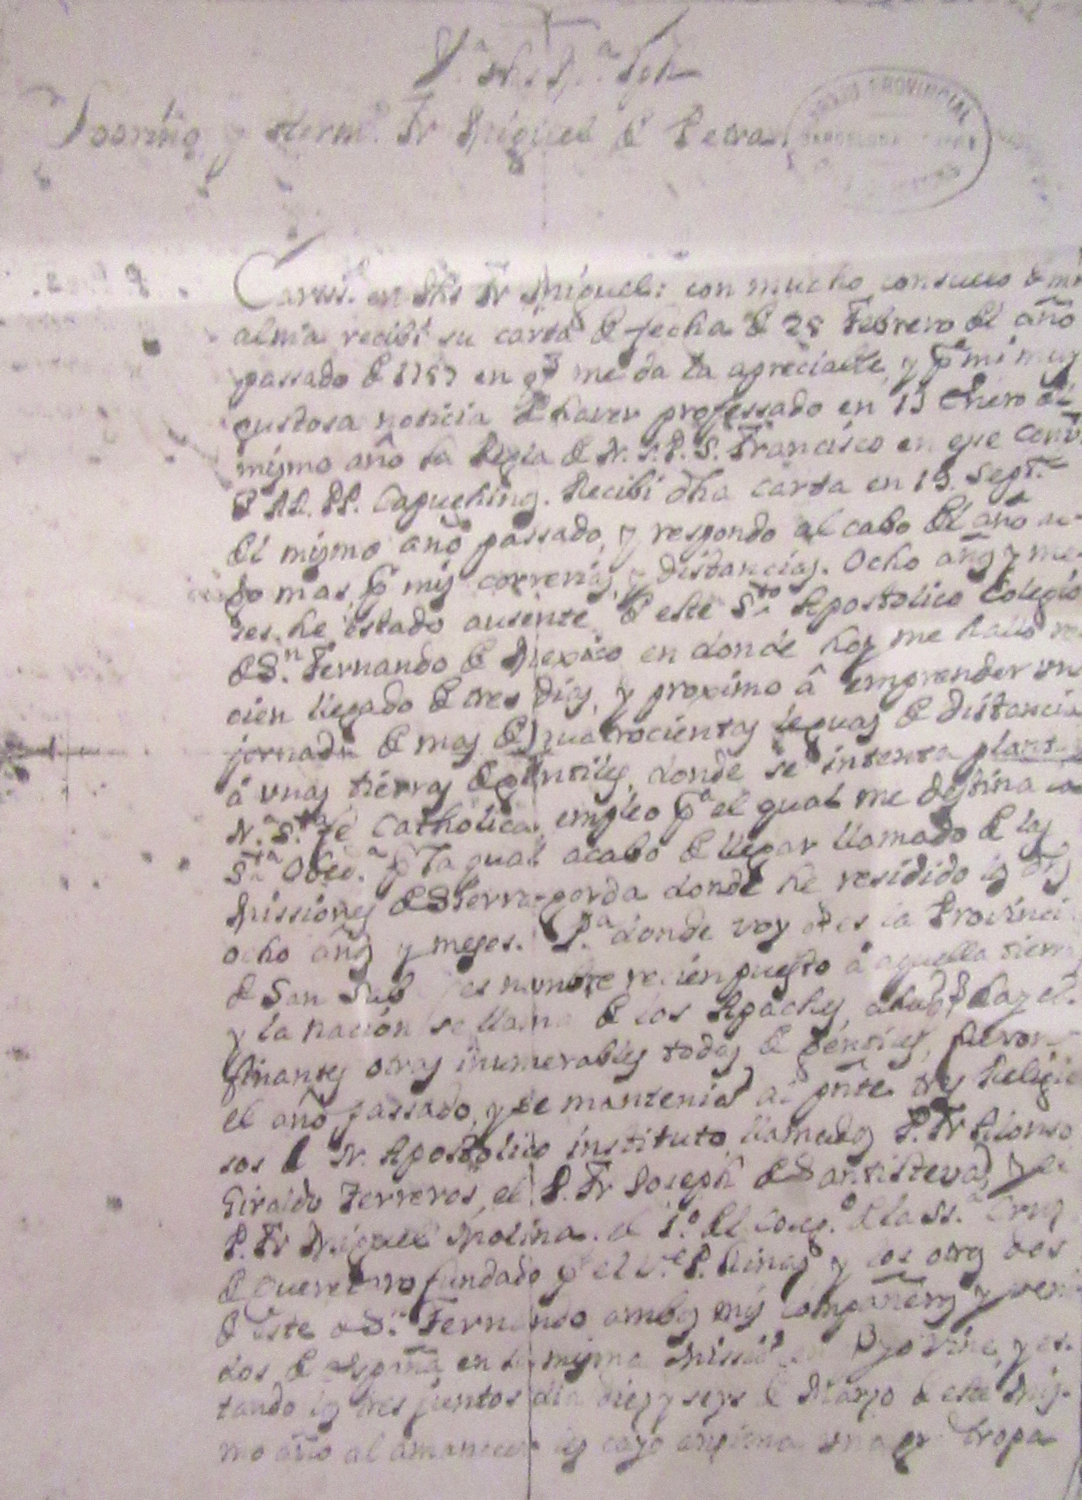 Sobrino, y Herm.º Fr Miguel de Petra
Cariss.º en Jhs Fr Miguel: con mucho consuelo de mi
alma recibi su carta de fecha de 25 Febrero del año
passado de 1757 en q.e me da la apreciable, y p.a mi muy
gustosa noticia de haver professado en 13 Enero del
mismo año la Regla de N. S. P. S. Francisco en ese Conv
de RR. PP. Capuchinos. Recibi dha carta en 19 Sept.e
del mismo año passado, y respondo al cabo del año
mas p.r mis correrias, y distancias. Ocho años y me-
ses he estado ausente de este S.to Apostolico Colegio
de S.n Fernando de Mexico en donde hoy me hallo re
cien llegado de tres dias, y proximo â emprender un
jornada de mas de quatrocientas leguas de distancia
â unas tierras de gentiles, donde se intenta plant
N.a S.ta fè Catholica, empleo p.a el qual me destina la
S.ta Obed.a p.r la qual acabo de llegar llamado de las
Missiones de Sierragorda donde he residido los dhos
ocho años y meses. P.a donde voy es la Provinci
de San Sabà es nombre recien puesto â aquella tierra
y la nacion se llama de los Apaches,
finantes otras inumerables todas de gentiles,
el año passado, y se mantenian al pñte tres Religio
sos de N. Apostolico instituto llamados P. Fr Alonso
Giraldo Terreros, el P. Fr Joseph de Santistevan, y el
P. Fr Miguel Molina. el 1.º del Coleg.º de la S.ta Cruz
de Queretaro fundado p.r el V.e P. Linas y los otros dos
de este de S.n Fernando ambos mis compañeros y veni
dos de España en la misma Mission en q yo vine, y es-
tando los tres juntos dia diez y seys de Marzo de este mis-
mo año al amanecer les cayo ensima una gr tropa